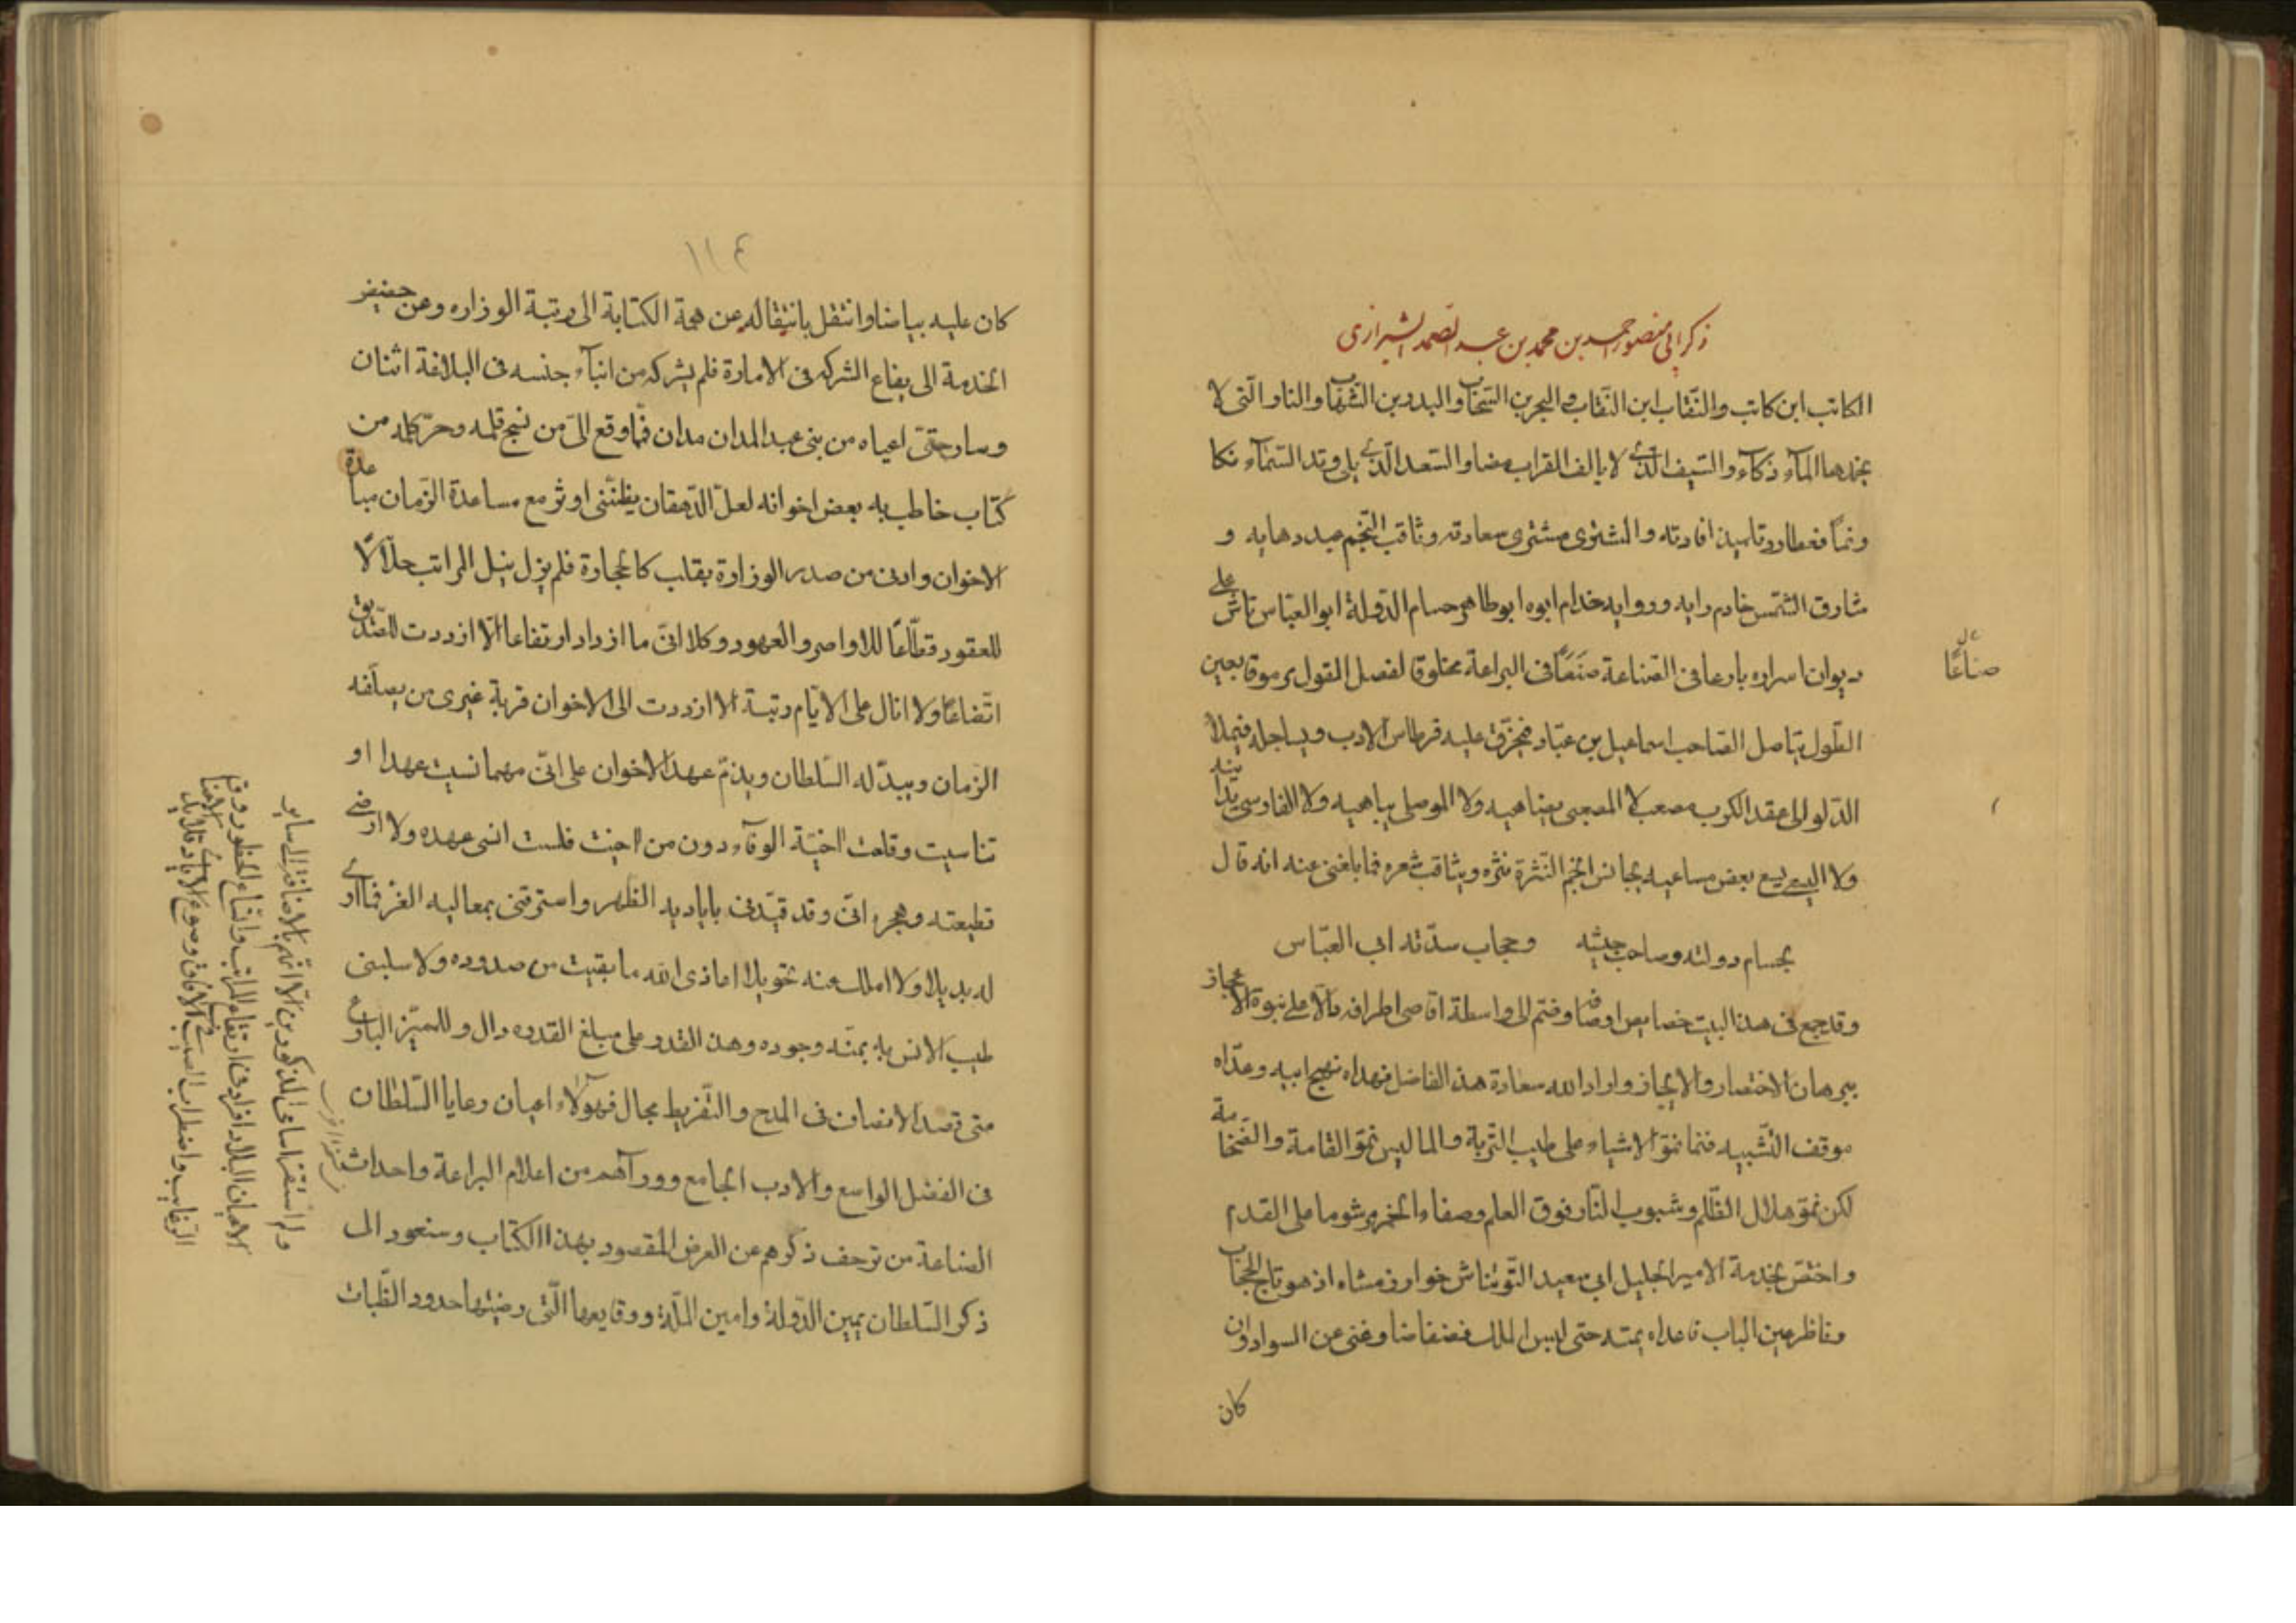 ذكر ابي منصور احمد بن محمد بن عبد الصمد الشيرازى
الكاتب ابن كاتب والنقاب ابن النقاب والبحر بن السحاب والبدر بن الشهاب والنار التى لا
يخمدها المآء ذكآء والسيف الذى لا يالف القراب مضا والسعد الذى يلى وتد السمآء نكا
ونمآ فعطارد تلميذ افادته والمشترى مشترى سعادته وثاقب النجم عبد دهايه و
شارق الشمس خادم رايه وروايه خدام ابوه ابو طاهر حسام الدولة ابو العباس تاش على
ديوان اسراره بارعا فى الصناعة صنعًا فى البراعة مخلوقا لفصل القول مرموقا بعين
صناعًا
الطول يناصل الصاحب اسماعيل بن عباد فيخرق عليه قرطاس الادب ويساجله فيملأ
الدلو الى عقد الكرب مصعب لا المصعبى يضاهيه ولا الموصلى يباهيه ولا الفارسى يدانيه
ولا البديع يسع بعض مساعيه يجانس انجم النثرة نثره ويثاقب شعره فما بلغنى عنه انه قال
بحسام دولته وصاحب جيشه وحجاب سدته ابى العباس
وقد جمع فى هذا البيت خصايص اوصافه وضم الى واسطة اقاصى اطرافه دالا على نبوة الاعجاز
ببرهان الاختصار والايجاز واراد الله سعادة هذا الفاضل فهداه نهج ابيه وعداه
موقف التشبيه فنما نمو الاشياء على طيب التربة والما ليس نمو القامة والضخامة
لكن نمو هلال الظلم وشبوب النار فوق العلم وصفاء الخمر مرشوما على القدم
واختص بخدمة الامير الجليل ابى سعيد التونتاش خوارزمشاه اذ هو تاج الحجاب
وناظر عين الباب فاعداه بمتد حتى لبس الملك فضفاضا وغنى عن السواد وان
كان
١١٤
كان عليه بياضا وانتقل بانتقاله عن همة الكتابة الى رتبة الوزاره وعن حضيض
الخدمة الى يفاع الشركه فى الامارة فلم يشركه من ابنآء جنسه فى البلاغة اثنان
وسار حتى اعياه من بنى عبد المدان مدان فما وقع الى من نسج قلمه وحر كلمه من
كتاب خاطب به بعض اخوانه لعل الدهقان يظننى اوثر مع مساعدة الزمان مباعدة
الاخوان وادنى من صدر الوزارة بقلب كالحجارة فلم يزل نيل المراتب حلالا
للعقود قطاعًا للاواصر والعهود وكلا انى ما ازداد ارتفاعا الا ازددت للصديق
اتضاعًا ولا انال على الايام رتبة الا ازددت الى الاخوان قربة غيرى من يصلفه
الزمان ويبدله السلطان ويذم عهده الاخوان على انى مهما نسيت عهدا او
تناسيت وقلعت اخية الوفآء دون من اخيت فلست انسى عهده ولا ارضى
قطيعته وهجره انى وقد قيدنى باياديه الظهر واسترقنى بمعاليه الغر فما ارى
له بديلا ولا املك عنه تحويلا اماذى الله ما بقيت من صدوده ولا سلبنى
طيب الانس به بمنه وجوده وهذا القدر على مبلغ القدره دال وللميز البارع
متى قصد الانصاف فى المدح والتقريط مجال فهولآء اعيان رعايا السلطان
فى الفضل الواسع والادب الجامع وورآهم من اعلام البراعة واحداث
الصناعة من ترحف ذكرهم عن الغرض المقصود بهذا الكتاب وسنعود الى
ذكر السلطان يمين الدولة وامين الملة ووقايعها التى رضيتها حدود الظبات
ولم استقز اسامى المذكورين الا انهم بالاضافة الى ساير
الاعيان البلاد افراد فى ارتفاع المراتب واتساع الحظوظ